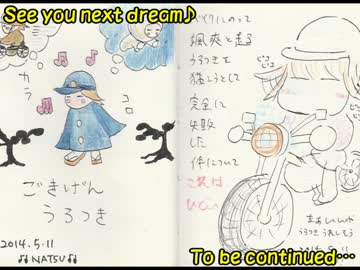 See you next dream♪
カラ
コロ
ごきげん
うろつき
2014.5.11
♫ NATSU ♫
バイクにのって
颯爽と走る
うろつきを
描こうとして
完全に
失敗した
件について
これは
ひどい
まぁいいや
うろつき うれしそう
2014.5.11
To be continued…